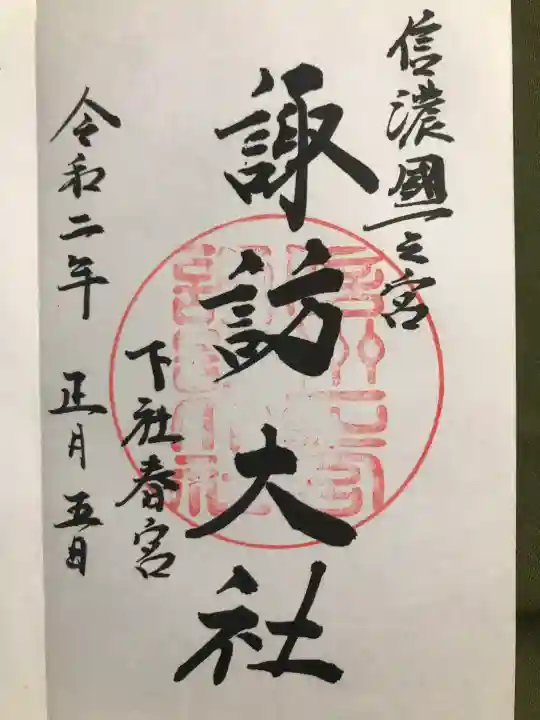 信濃國一之宮
諏訪大社
下社春宮
令和二年 正月五日